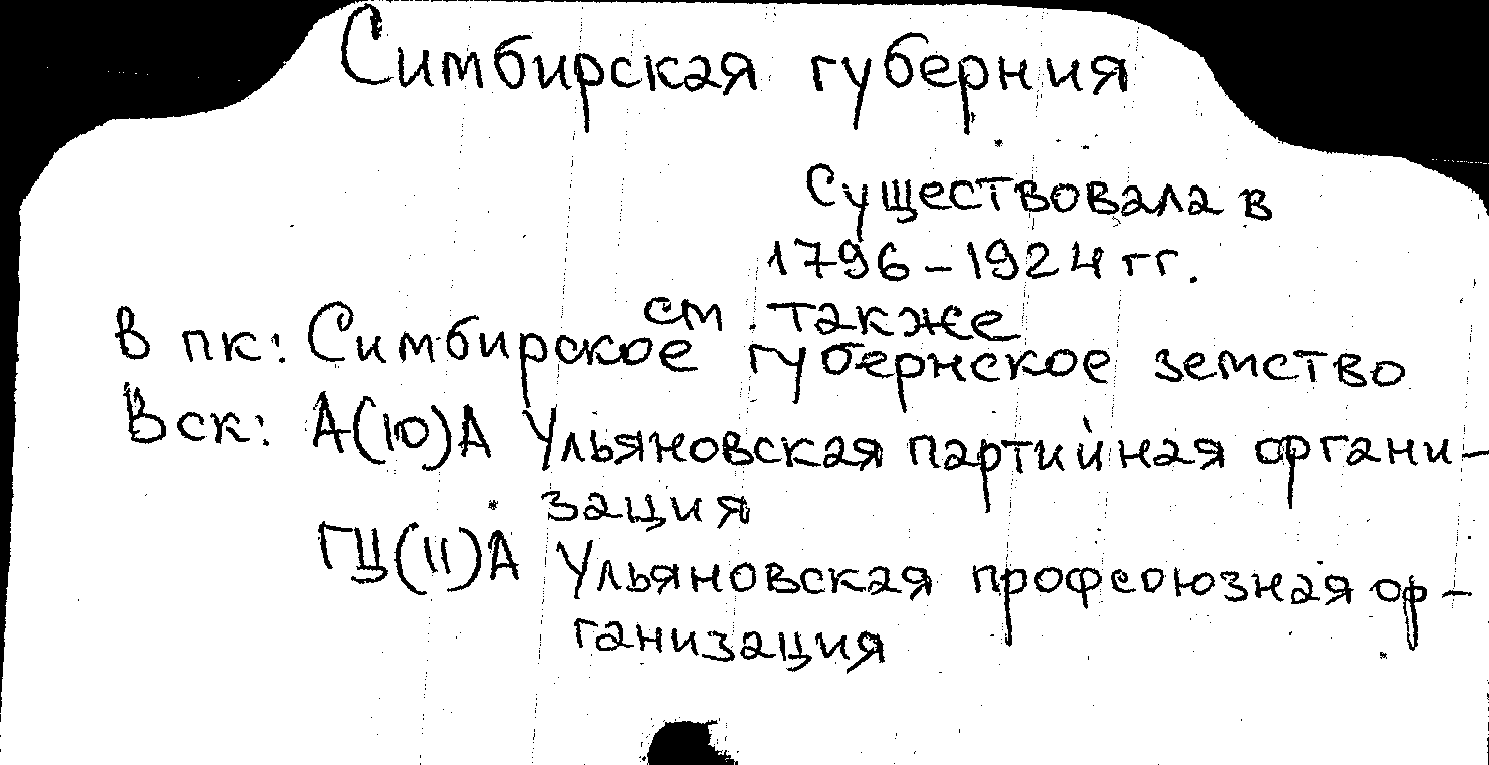 Симбирская губерния
Существовала в
1796-1924 гг.
см. также
В пк: Симбирское губернское земство
В ск: А(10)А Ульяновская партийная органи-
зация
ГЦ(11)А Ульяновская профсоюзная ор-
ганизация